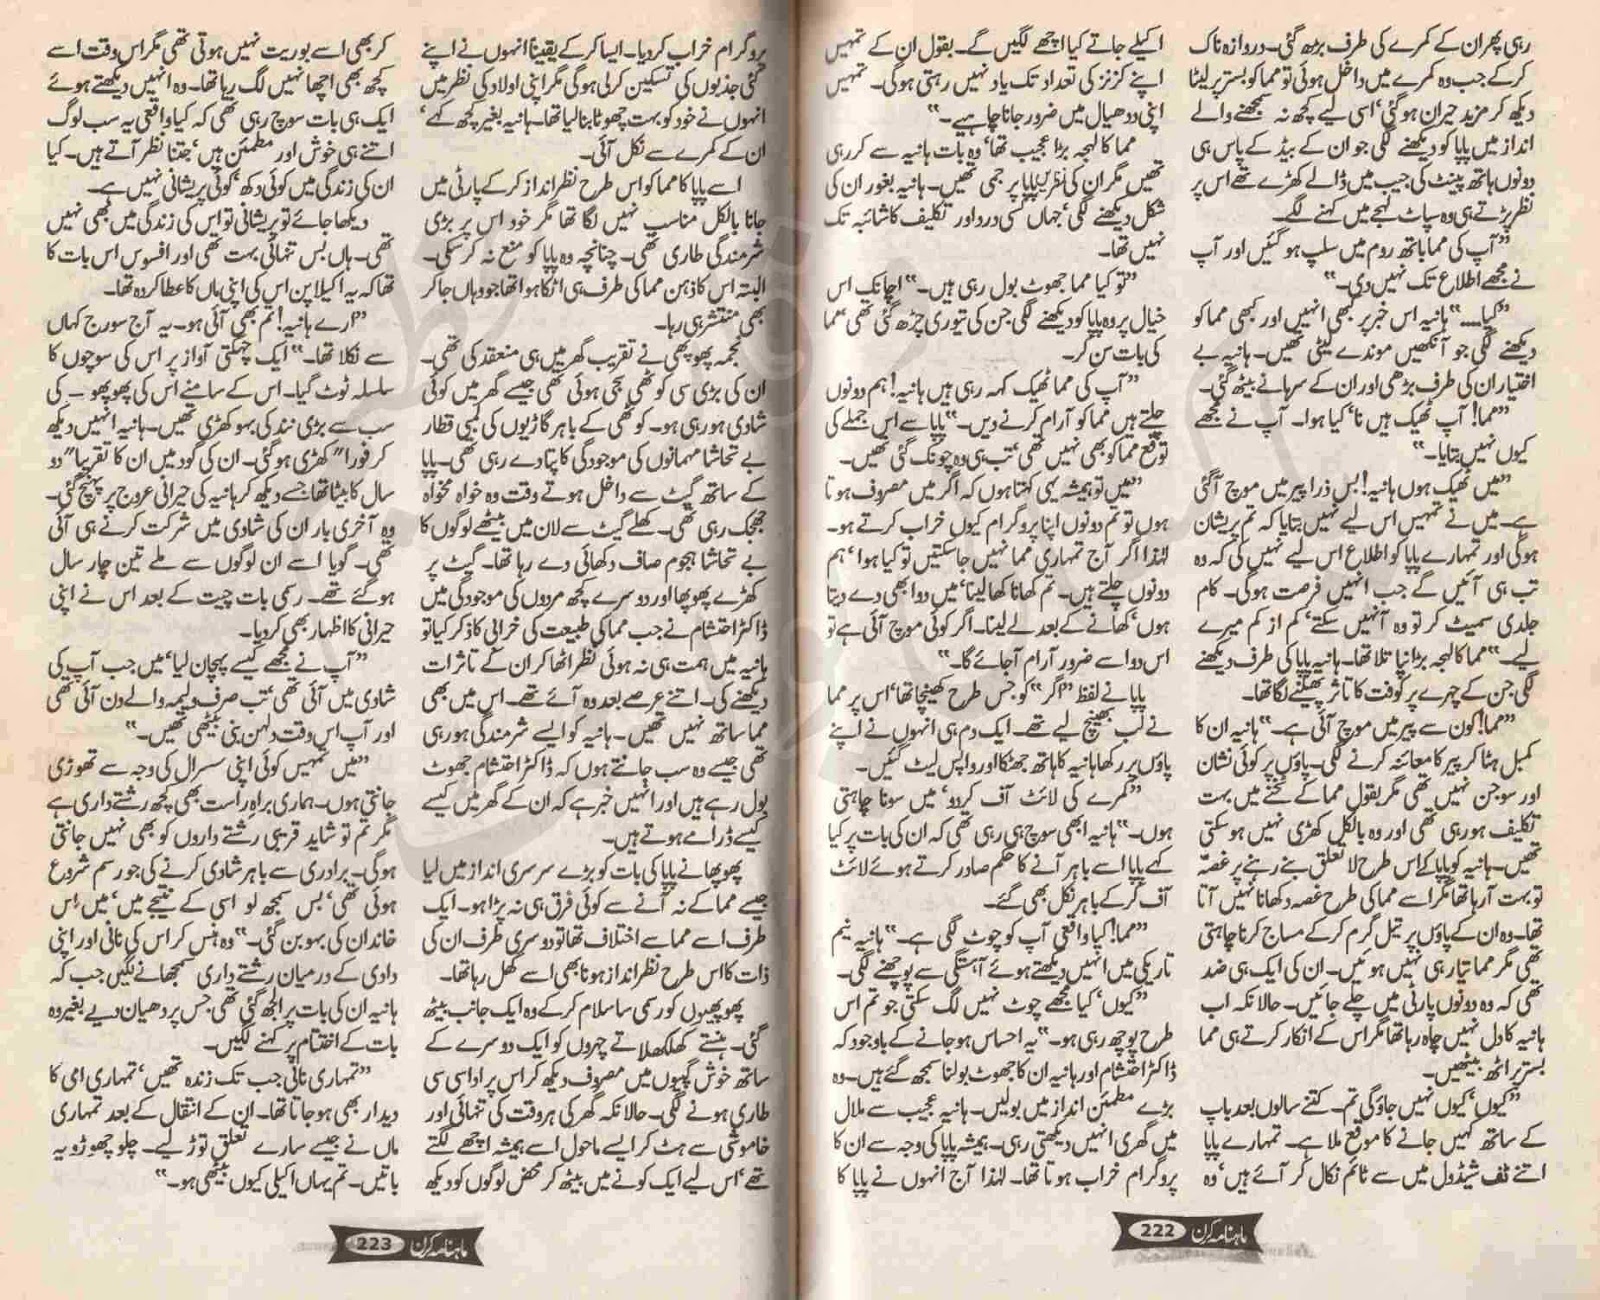 رہی پھر ان کے کمرے کی طرف بڑھ گئی۔ دروازہ ناک
کر کے جب وہ کمرے میں داخل ہوئی تو مما کو بستر پر لیٹا
دیکھ کر مزید حیران ہو گئی‘ اسی لیے کچھ نہ سمجھنے والے
انداز میں پاپا کو دیکھنے لگی جو ان کے بیڈ کے پاس ہی
دونوں ہاتھ پینٹ کی جیب میں ڈالے کھڑے تھے اس پر
نظر پڑتے ہی وہ سپاٹ لہجے میں کہنے لگے۔
”آپ کی مما باتھ روم میں سلپ ہو گئیں اور آپ
نے مجھے اطلاع تک نہیں دی۔“
”کیا....“ ہانیہ اس خبر پر کبھی انہیں اور کبھی مما کو
دیکھنے لگی جو آنکھیں موندے لیٹی تھیں۔ ہانیہ بے
اختیار ان کی طرف بڑھی اور ان کے سرہانے بیٹھ گئی۔
”مما! آپ ٹھیک ہیں نا‘ کیا ہوا۔ آپ نے مجھے
کیوں نہیں بتایا۔“
”میں ٹھیک ہوں ہانیہ! بس ذرا پیر میں موچ آ گئی
ہے۔ میں نے تمہیں اس لیے نہیں بتایا کہ تم پریشان
ہوگی اور تمہارے پاپا کو اطلاع اس لیے نہیں کی کہ وہ
تب ہی آئیں گے جب انہیں فرصت ہوگی۔ کام
جلدی سمیٹ کر تو وہ آ نہیں سکتے‘ کم از کم میرے
لیے۔“ مما کا لہجہ بڑا نپا تلا تھا۔ ہانیہ پاپا کی طرف دیکھنے
لگی جن کے چہرے پر کوفت کا تاثر پھیلنے لگا تھا۔
”مما! کون سے پیر میں موچ آئی ہے۔“ ہانیہ ان کا
کمبل ہٹا کر پیر کا معائنہ کرنے لگی۔ پاؤں پر کوئی نشان
اور سوجن نہیں تھی مگر بقول مما کے ٹخنے میں بہت
تکلیف ہو رہی تھی اور وہ بالکل کھڑی نہیں ہو سکتی
تھیں۔ ہانیہ کو پاپا کے اس طرح لا تعلق بنے رہنے پر غصہ
تو بہت آ رہا تھا مگر اسے مما کی طرح غصہ دکھانا نہیں آتا
تھا۔ وہ ان کے پاؤں پر تیل گرم کر کے مساج کرنا چاہتی
تھی مگر مما تیار ہی نہیں ہوئیں۔ ان کی ایک ہی ضد
تھی کہ وہ دونوں پارٹی میں چلے جائیں۔ حالانکہ اب
ہانیہ کا دل نہیں چاہ رہا تھا مگر اس کے انکار کرتے ہی مما
بستر پر اٹھ بیٹھیں۔
”کیوں‘ کیوں نہیں جاؤ گی تم۔ کتنے سالوں بعد باپ
کے ساتھ کہیں جانے کا موقع ملا ہے۔ تمہارے پاپا
اتنے ٹف شیڈول میں سے ٹائم نکال کر آئے ہیں‘ وہ
اکیلے جاتے کیا اچھے لگیں گے۔ بقول ان کے تمہیں
اپنے کزنز کی تعداد تک یاد نہیں رہتی ہوگی۔ تمہیں
اپنی ددھیال میں ضرور جانا چاہیے۔“
مما کا لہجہ بڑا عجیب تھا‘ وہ بات ہانیہ سے کر رہی
تھیں مگر ان کی نظریں پاپا پر جمی تھیں۔ ہانیہ بغور ان کی
شکل دیکھنے لگی‘ جہاں کسی درد اور تکلیف کا شائبہ تک
نہیں تھا۔
”تو کیا مما جھوٹ بول رہی ہیں۔“ اچانک اس
خیال پر وہ پاپا کو دیکھنے لگی جن کی تیوری چڑھ گئی تھی‘ مما
کی بات سن کر۔
”آپ کی مما ٹھیک کہہ رہی ہیں ہانیہ! ہم دونوں
چلتے ہیں مما کو آرام کرنے دیں۔“ پاپا سے اس جملے کی
توقع مما کو بھی نہیں تھی‘ تب ہی وہ چونک گئی تھیں۔
”میں تو ہمیشہ یہی کہتا ہوں کہ اگر میں مصروف ہوتا
ہوں تو تم دونوں اپنا پروگرام کیوں خراب کرتے ہو۔
لہٰذا اگر آج تمہاری مما نہیں جا سکتیں تو کیا ہوا‘ ہم
دونوں چلتے ہیں۔ تم کھانا کھا لینا‘ میں دوا بھی دے دیتا
ہوں‘ کھانے کے بعد لے لینا۔ اگر کوئی موچ آئی ہے تو
اس دوا سے ضرور آرام آ جائے گا۔“
پاپا نے لفظ ”اگر“ کو جس طرح کھینچا تھا‘ اس پر مما
نے لب بھینچ لیے تھے۔ ایک دم ہی انہوں نے اپنے
پاؤں پر رکھا ہانیہ کا ہاتھ جھٹکا اور واپس لیٹ گئیں۔
”کمرے کی لائٹ آف کر دو‘ میں سونا چاہتی
ہوں۔“ ہانیہ ابھی سوچ ہی رہی تھی کہ ان کی بات پر کیا
کہے پاپا اسے باہر آنے کا حکم صادر کرتے ہوئے لائٹ
آف کر کے باہر نکل بھی گئے۔
”مما! کیا واقعی آپ کو چوٹ لگی ہے۔“ ہانیہ نیم
تاریکی میں انہیں دیکھتے ہوئے آہستگی سے پوچھنے لگی۔
”کیوں‘ کیا مجھے چوٹ نہیں لگ سکتی جو تم اس
طرح پوچھ رہی ہو۔“ یہ احساس ہو جانے کے باوجود کہ
ڈاکٹر احتشام اور ہانیہ ان کا جھوٹ بولنا سمجھ گئے ہیں۔ وہ
بڑے مطمئن انداز میں بولیں۔ ہانیہ عجیب سے ملال
میں گھری انہیں دیکھتی رہی۔ ہمیشہ پاپا کی وجہ سے ان کا
پروگرام خراب ہوتا تھا۔ لہٰذا آج انہوں نے پاپا کا
ماہنامہ کرن 222
پروگرام خراب کر دیا۔ ایسا کر کے یقیناً انہوں نے اپنے
کئی جذبوں کی تسکین کر لی ہوگی مگر اپنی اولاد کی نظر میں
انہوں نے خود کو بہت چھوٹا بنا لیا تھا۔ ہانیہ بغیر کچھ کہے‘
ان کے کمرے سے نکل آئی۔
اسے پاپا کا مما کو اس طرح نظر انداز کر کے پارٹی میں
جانا بالکل مناسب نہیں لگا تھا مگر خود اس پر بڑی
شرمندگی طاری تھی۔ چنانچہ وہ پاپا کو منع نہ کر سکی۔
البتہ اس کا ذہن مما کی طرف ہی اٹکا ہوا تھا جو وہاں جا کر
بھی منتشر ہی رہا۔
نجمہ پھوپھی نے تقریب گھر میں ہی منعقد کی تھی۔
ان کی بڑی سی کوٹھی سجی ہوئی تھی جیسے گھر میں کوئی
شادی ہو رہی ہو۔ کوٹھی کے باہر گاڑیوں کی لمبی قطار
بے تحاشا مہمانوں کی موجودگی کا پتا دے رہی تھی۔ پاپا
کے ساتھ گیٹ سے داخل ہوتے وقت وہ خواہ مخواہ
جھجک رہی تھی۔ کھلے گیٹ سے لان میں بیٹھے لوگوں کا
بے تحاشا ہجوم صاف دکھائی دے رہا تھا۔ گیٹ پر
کھڑے پھوپھا اور دوسرے کچھ مردوں کی موجودگی میں
ڈاکٹر احتشام نے جب مما کی طبیعت کی خرابی کا ذکر کیا تو
ہانیہ میں ہمت ہی نہ ہوئی نظر اٹھا کر ان کے تاثرات
دیکھنے کی۔ اتنے عرصے بعد وہ آئے تھے۔ اس میں بھی
مما ساتھ نہیں تھیں۔ ہانیہ کو ایسے شرمندگی ہو رہی
تھی جیسے وہ سب جانتے ہوں کہ ڈاکٹر احتشام جھوٹ
بول رہے ہیں اور انہیں خبر ہے کہ ان کے گھر میں کیسے
کیسے ڈرامے ہوتے ہیں۔
پھوپھا نے پاپا کی بات کو بڑے سرسری انداز میں لیا
جیسے مما کے نہ آنے سے کوئی فرق ہی نہ پڑا ہو۔ ایک
طرف اسے مما سے اختلاف تھا تو دوسری طرف ان کی
ذات کا اس طرح نظر انداز ہونا بھی اسے کھل رہا تھا۔
پھوپھیوں کو رسمی سا سلام کر کے وہ ایک جانب بیٹھ
گئی۔ ہنستے کھلکھلاتے چہروں کو ایک دوسرے کے
ساتھ خوش گپیوں میں مصروف دیکھ کر اس پر اداسی سی
طاری ہونے لگی۔ حالانکہ گھر کی ہر وقت کی تنہائی اور
خاموشی سے ہٹ کر ایسے ماحول اسے ہمیشہ اچھے لگتے
تھے‘ اس لیے ایک کونے میں بیٹھ کر محض لوگوں کو دیکھ
کر بھی اسے بوریت نہیں ہوتی تھی مگر اس وقت اسے
کچھ بھی اچھا نہیں لگ رہا تھا۔ وہ انہیں دیکھتے ہوئے
ایک ہی بات سوچ رہی تھی کہ کیا واقعی یہ سب لوگ
اتنے ہی خوش اور مطمئن ہیں‘ جتنا نظر آتے ہیں۔ کیا
ان کی زندگی میں کوئی دکھ‘ کوئی پریشانی نہیں ہے۔
دیکھا جائے تو پریشانی تو اس کی زندگی میں بھی نہیں
تھی۔ ہاں بس تنہائی بہت تھی اور افسوس اس بات کا
تھا کہ یہ اکیلا پن اس کی اپنی ماں کا عطا کردہ تھا۔
”ارے ہانیہ! تم بھی آئی ہو۔ یہ آج سورج کہاں
سے نکلا تھا۔“ ایک چہکتی آواز پر اس کی سوچوں کا
سلسلہ ٹوٹ گیا۔ اس کے سامنے اس کی پھوپھو ۔ کی
سب سے بڑی نند کی بہو کھڑی تھیں۔ ہانیہ انہیں دیکھ
کر فوراً کھڑی ہو گئی۔ ان کی گود میں ان کا تقریباً دو
سال کا بیٹا تھا جسے دیکھ کر ہانیہ کی حیرانی عروج پر پہنچ گئی۔
وہ آخری بار ان کی شادی میں شرکت کرنے ہی آئی
تھی۔ گویا اسے ان لوگوں سے ملے تین چار سال
ہو گئے تھے۔ رسمی بات چیت کے بعد اس نے اپنی
حیرانی کا اظہار بھی کر دیا۔
”آپ نے مجھے کیسے پہچان لیا‘ میں جب آپ کی
شادی میں آئی تھی‘ تب صرف ولیمہ والے دن آئی تھی
اور آپ اس وقت دلہن بنی بیٹھی تھیں۔“
”میں تمہیں کوئی اپنی سسرال کی وجہ سے تھوڑی
جانتی ہوں۔ ہماری براہ راست بھی کچھ رشتے داری ہے
مگر تم تو شاید قریبی رشتے داروں کو بھی نہیں جانتی
ہوگی۔ برادری سے باہر شادی کرنے کی جو رسم شروع
ہوئی تھی‘ بس سمجھ لو اسی کے نتیجے میں‘ میں اس
خاندان کی بہو بن گئی۔“ وہ ہنس کر اس کی نانی اور اپنی
دادی کے درمیان رشتے داری سمجھانے لگیں جب کہ
ہانیہ ان کی بات پر الجھ گئی تھی جس پر دھیان دیے بغیر وہ
بات کے اختتام پر کہنے لگیں۔
”تمہاری نانی جب تک زندہ تھیں‘ تمہاری امی کا
دیدار بھی ہو جاتا تھا۔ ان کے انتقال کے بعد تمہاری
ماں نے جیسے سارے تعلق توڑ لیے۔ چلو چھوڑو یہ
باتیں۔ تم یہاں اکیلی کیوں بیٹھی ہو۔“
ماہنامہ کرن 223